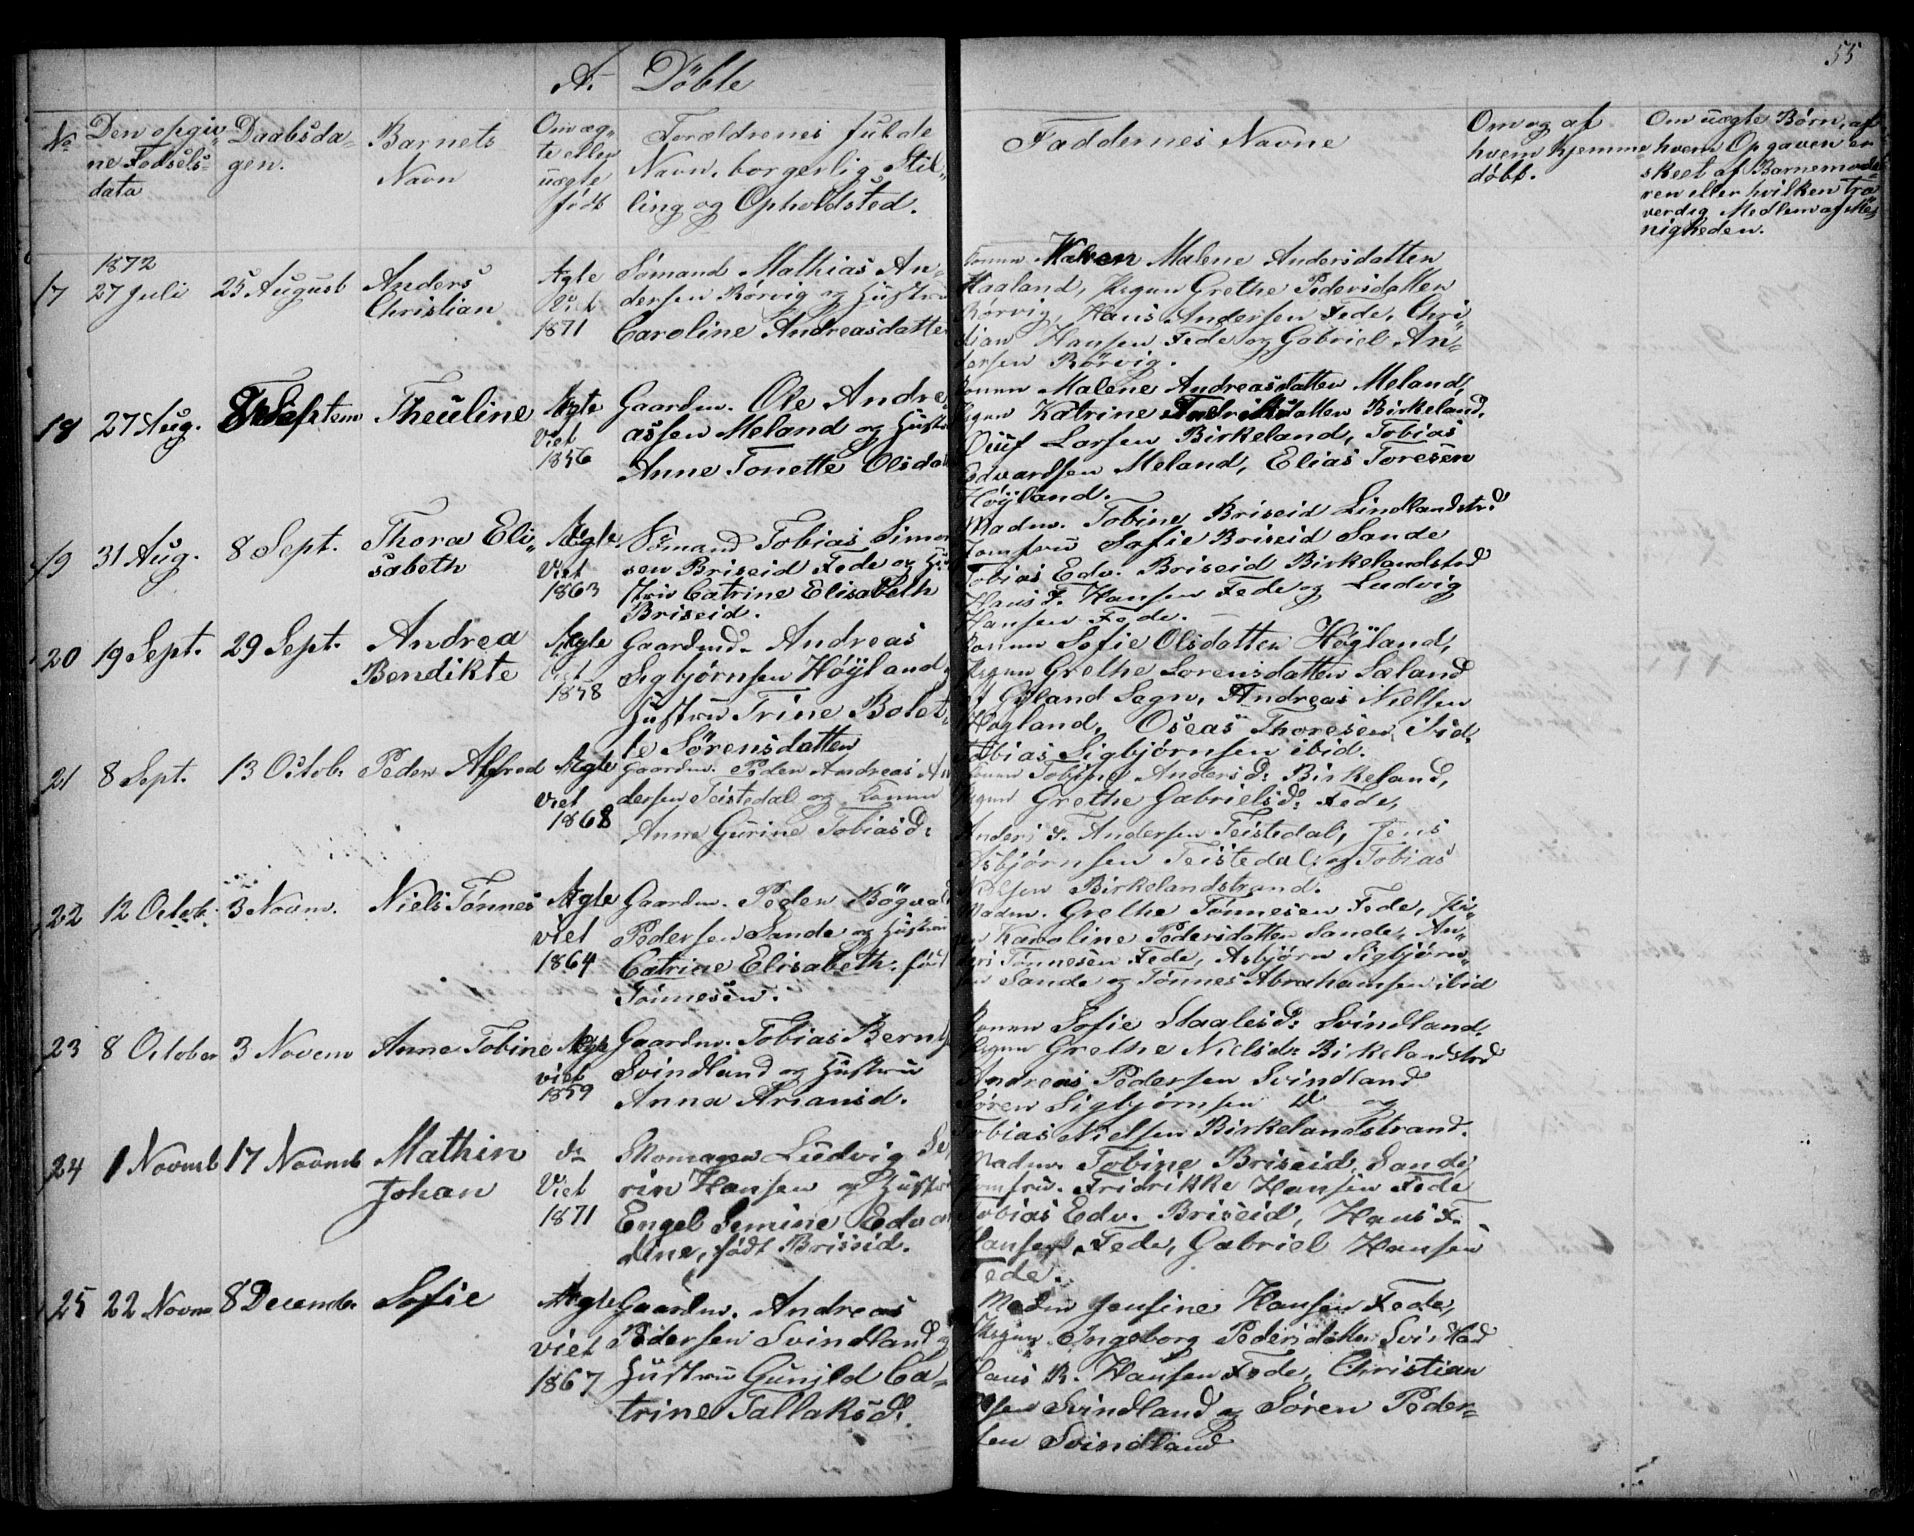 55
A. Döbte
No
Den opgiv-
ne Fødsels-
data
Daabsda-
gen.
Barnets
Navn
Om æg-
te eller
uægte
født
Forældrenes fulde
Navn, borgerlig Stil-
ling og Opholdsted.
Faddernes Navne
Om og af
hvem hjemme
döbt.
Om uægte Børn, af
hvem Opgaven er
skeet af Barnemode-
ren eller hvilken tro
verdig Medlem af Me-
nigheden.
17
1872
27 Juli
25 August
Anders
Christian
Ægte
Viet
1871
Sømand Mathias An-
dersen Rörvig og Hustru
Caroline Andreasdatter
Konen Malene Andersdatter
Haaland, Pigen Grethe Pedersdatter
Rörvig, Hans Andersen Fede, Chri-
stian Hansen Fede og Gabriel An-
dersen Rörvig.
18
27 Aug.
8 Septem
Theuline
Ægte
Viet
1856
Gaardm. Ole Andre-
assen Meland og Hustru
Anne Tonette Olsdat
Konen Malene Andreasdatter Meland,
Pigen Katrine Fredriksdatter Birkeland,
Larsen Birkeland, Tobias
Edvardsen Meland, Elias Toresen
Höyland.
19
31 Aug.
8 Sept.
Thora Eli-
sabeth
Ægte
Viet
1863
Sömand Tobias Simon
sen Briseid Fede og Hu
stru Catrine Elisabeth
Briseid.
Madm. Tobine Briseid Lindlandstrd
Jomfru Sofie Briseid Sande
Tobias Edv. Briseid Birkelandstrd
Hans F. Hansen Fede og Ludvig
Hansen Fede.
20
19 Sept.
29 Sept.
Andrea
Bendikte
Ægte
Viet
1858
Gaardmd. Andreas
Sigbjörnsen Höyland
Hustru Trine Bolet-
te Sörensdatter
Konen Sofie Olsdatter Höyland,
Pigen Grethe Lorensdatter Sæland
af Gyland Sogn, Andreas Nielsen
Høgland, Oseas Thoresen ibid.
Tobias Sigbjörnsen ibid.
21
8 Sept.
13 Octob.
Peder Alfred
Ægte
Viet
1868
Gaardm. Peder Andreas An
dersen Teistedal og Konen
Anne Gurine Tobiasd:
Konen Tobine Andersd: Birkeland,
Pigen Grethe Gabrielsd: Fede,
Anders F. Andersen Teistedal, Jens
Asbjörnsen Teistedal og Tobias
Nielsen Birkelandstrand.
22
12 Octob.
3 Novm.
Niels Tönnes
Ægte
Viet
1864
Gaardm. Peder Bögvald
Pedersen Sande og Hustru
Catrine Elisabeth, föd
Tönnesen.
Madm. Grethe Tönnesen Fede, Pi-
gen Karoline Pedersdatter Sande, An-
ders Tönnesen Fede, Asbjörn Sigbjörn-
sen Sande og Tönnes Abrahamsen ibid
23
8 October
3 Novem
Anne Tobine
Ægte
viet
1859
Gaardm. Tobias Bernt
Svindland og Hustru
Anna Ariansd.
Konen Sofie Staalesd: Svindland.
Pigen Grethe Nielsd: Birkelandstrd
Andreas Pedersen Svindland
Sören Sigbjörnsen Do og
Tobias Nielsen Birkelandstrand.
24
1 Novmb
17 Novmb
Mathin
Johan
do
Viet
1871
Skomager Ludvig Se
rin Hansen og Hustru
Engel Semine Edvar
dine, født Briseid.
Madm. Tobine Briseid, Sande,
Jomfru. Fridrikke Hansen Fede
Tobias Edv. Briseid, Hans F.
Hansen, Fede, Gabriel Hansen
Fede.
25
22 Novm
8 Decemb.
Sofie
Ægte
viet
1867
Gaardm. Andreas
Pedersen Svindland og
Hustru Gunild Ca-
trine Tallaksd:
Madm Jensine Hansen Fede,
Pigen Ingeborg Pedersdatter Svindland
Hans R. Hansen Fede, Christian
Olsen Svindland og Sören Peder-
sen Svindland